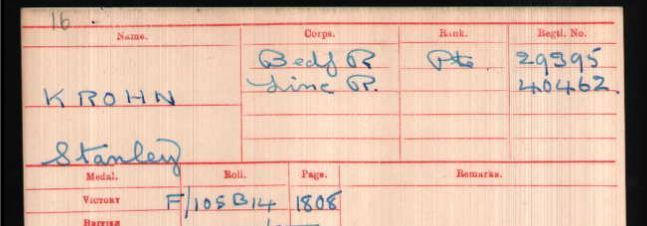 16.
Name. Corps. Rank. Regtl. No.
Bedf R Pte 29395
KROHN Linc R. 40462.
Stanley
Medal. Roll. Page. Remarks.
VICTORY F/105B14 1808
BRITISH